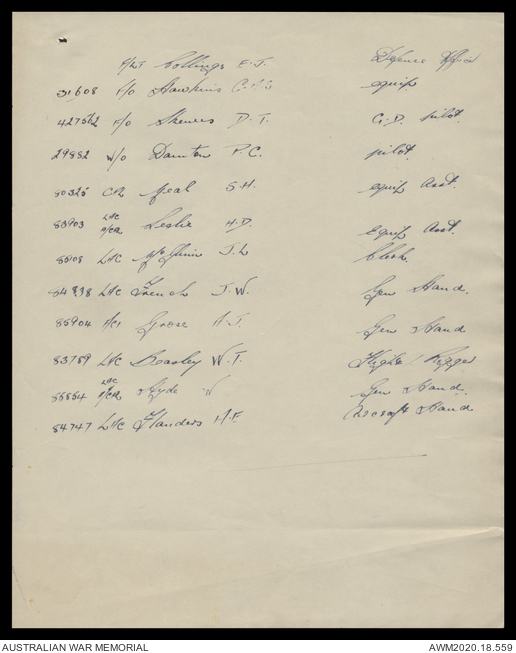 F/Lt Collings E.J. Defence Officer
31608 F/O Hawkins equip
427562 F/O Skewes D.T. G.D. pilot.
29882 W/O Daunton P.C. pilot.
80325 Cpl Neal S.H. equip Asst.
83903 LAC A/Cpl Leslie H.D. Equip Asst.
LAC McGlinn J.L Clerk
LAC French J.W. Gen Hand.
85904 Grose A.J. Gen Hand
83789 LAC Beasley W.T. Flight Rigger
LAC A/Cpl Hyde W Gen Hand.
84747 LAC Flanders H.F. Aircraft Hand
AUSTRALIAN WAR MEMORIAL AWM2020.18.559